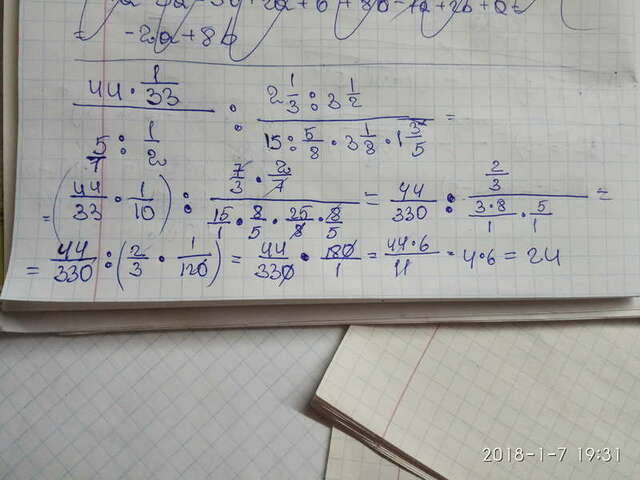 = -2a+8b
44 · 1/33 / 5/7 : 1/2 : 2 1/3 : 3 1/2 / 15 : 5/8 · 3 1/8 · 1 3/5 =
= (44/33 · 1/10) : 7/3 · 2/7 / 15/1 · 8/5 · 25/8 · 8/5 = 44/330 : 2/3 / 3·8/1 · 5/1 =
= 44/330 : (2/3 · 1/120) = 44/330 · 180/1 = 44·6/11 = 4·6 = 24
2018-1-7 19:31